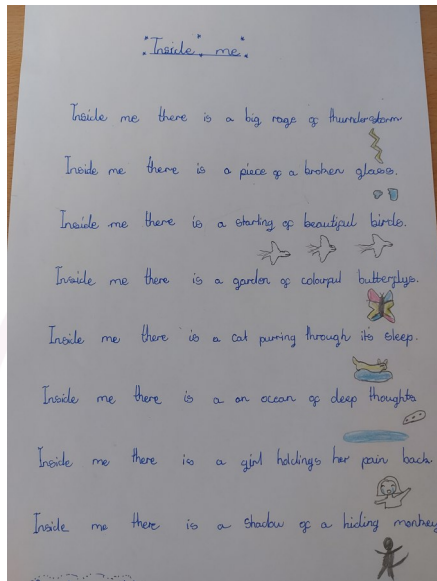 Inside me
Inside me there is a big rage of thunderstorm
Inside me there is a piece of a broken glass.
Inside me there is a starting of beautiful birds.
Inside me there is a garden of colourful butterflys.
Inside me there is a cat purring through its sleep.
Inside me there is a an ocean of deep thoughts
Inside me there is a girl holdings her pain back.
Inside me there is a shadow of a hiding monkey